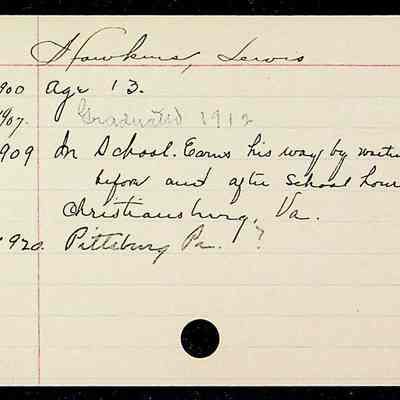 Hawkins, Lewis
900 Age 13.
1907. Graduated 1912
909 In School. Earns his way by
before and after School hour
Christiansburg, Va.
1920. Pittsburg Pa. ?